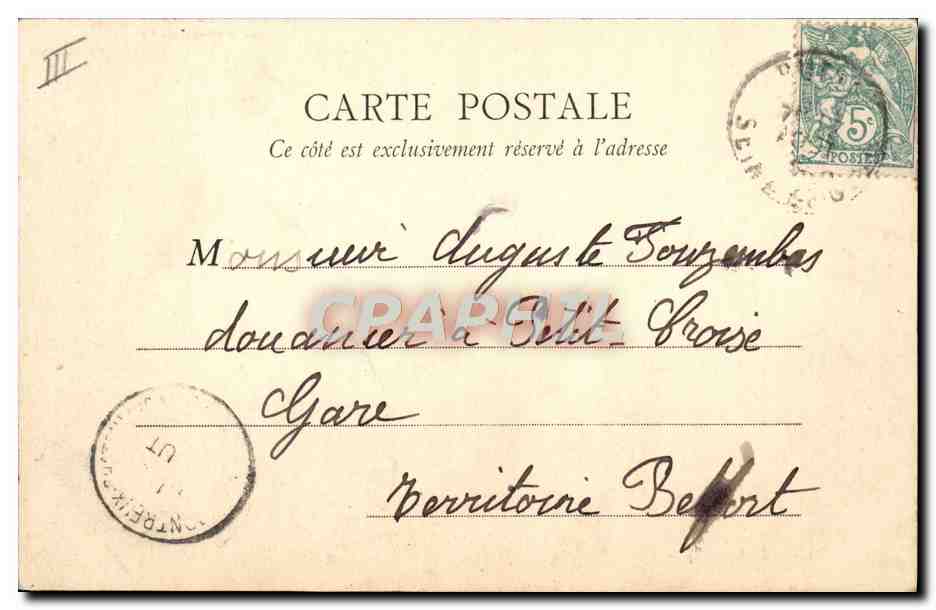 III
CARTE POSTALE
Ce côté est exclusivement réservé à l'adresse
5c
POSTES
SEINE
Monsieur Auguste
douanier à Petit-Croise
Gare
Territoire Belfort
CPAPHIL
MONTREUX
UT